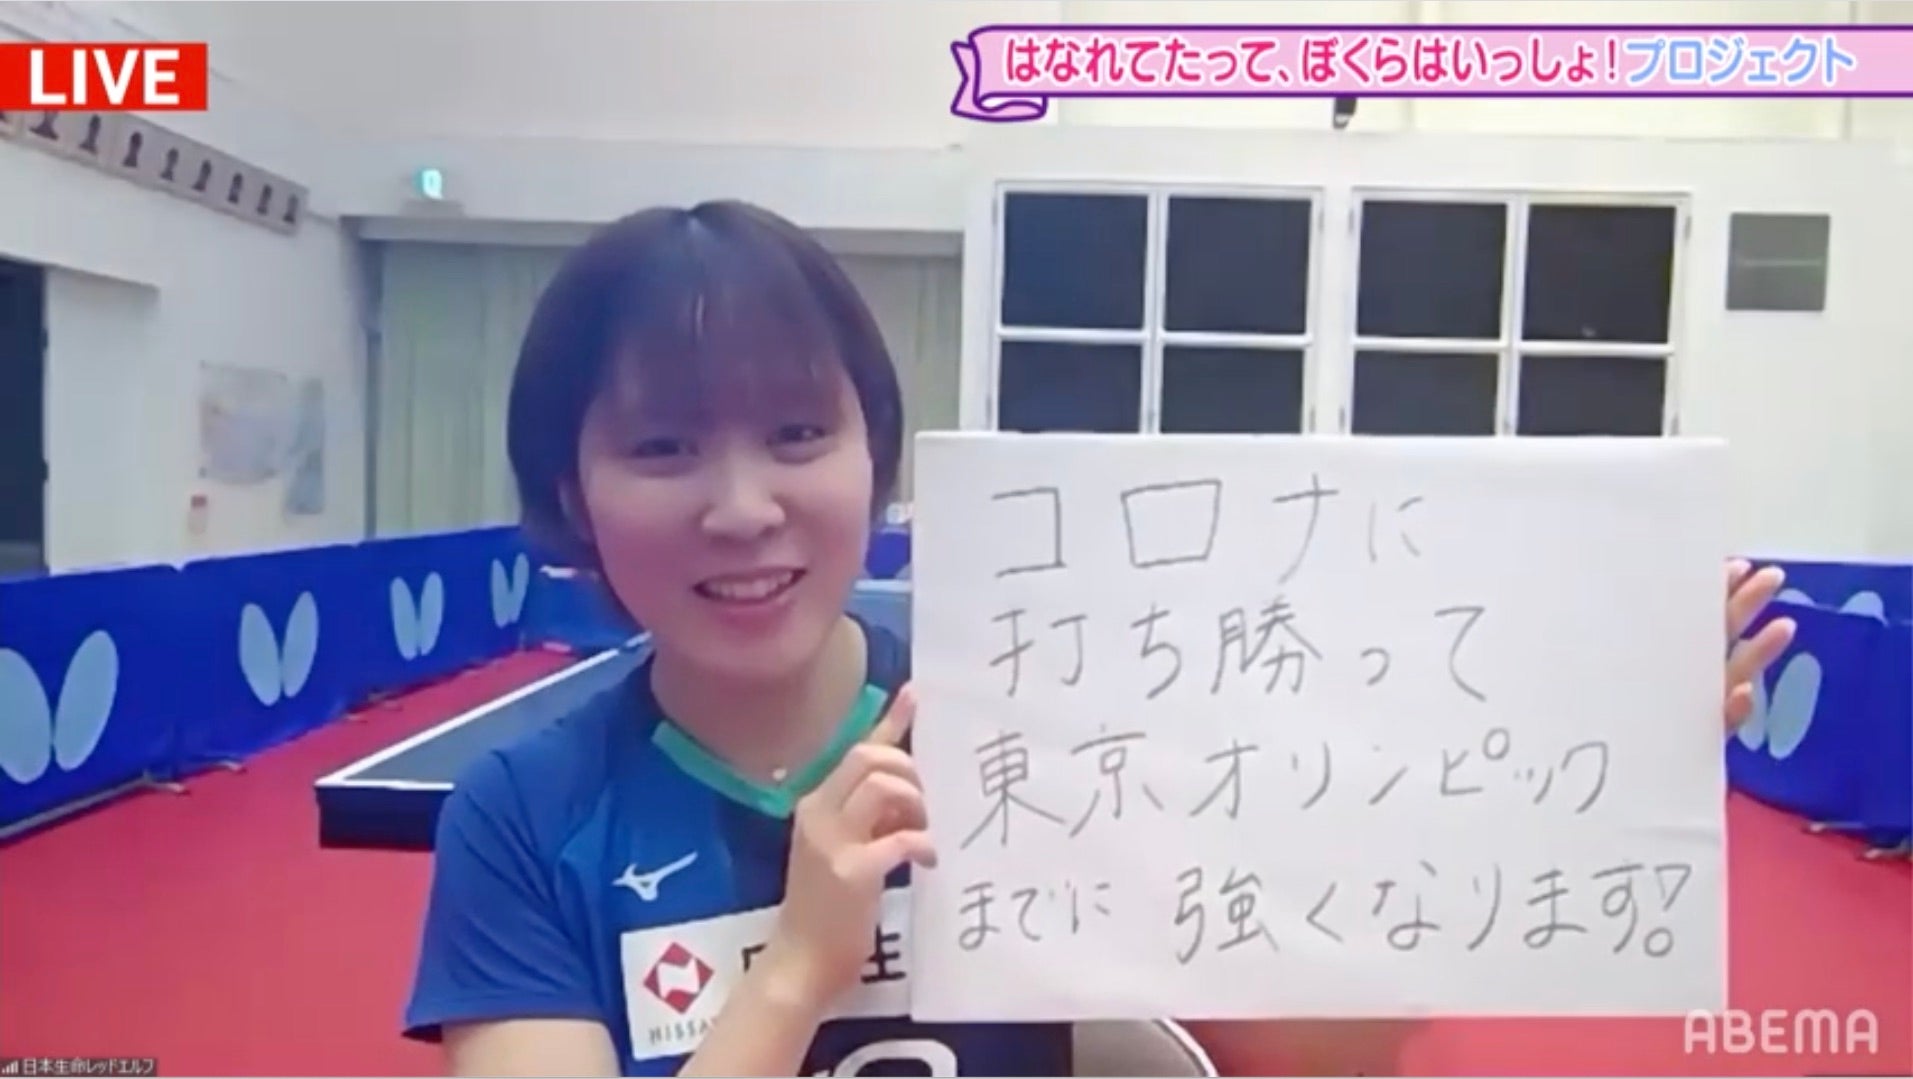 LIVE
はなれてたって、ぼくらはいっしょ!プロジェクト
コロナに
打ち勝って
東京オリンピック
までに 強くなります!
生
NISSA
ABEMA
日本生命レッドエルフ